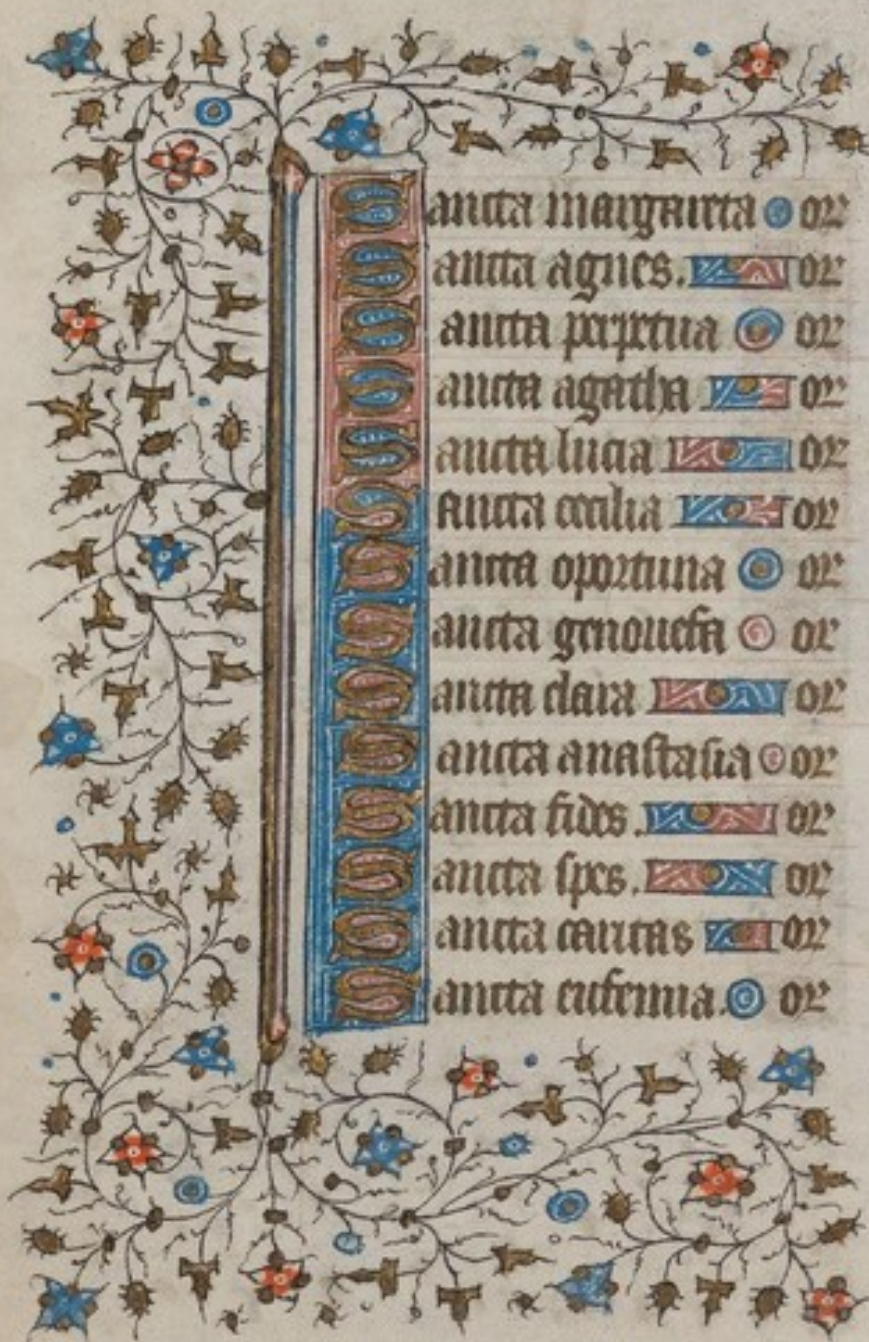 Sancta margareta or
Sancta agnes. or
Sancta perpetua or
Sancta agatha or
Sancta lucia or
Sancta cecilia or
Sancta oportuna or
Sancta genouefa or
Sancta clara or
Sancta anastasia or
Sancta fides. or
Sancta spes. or
Sancta caritas or
Sancta eufemia. or